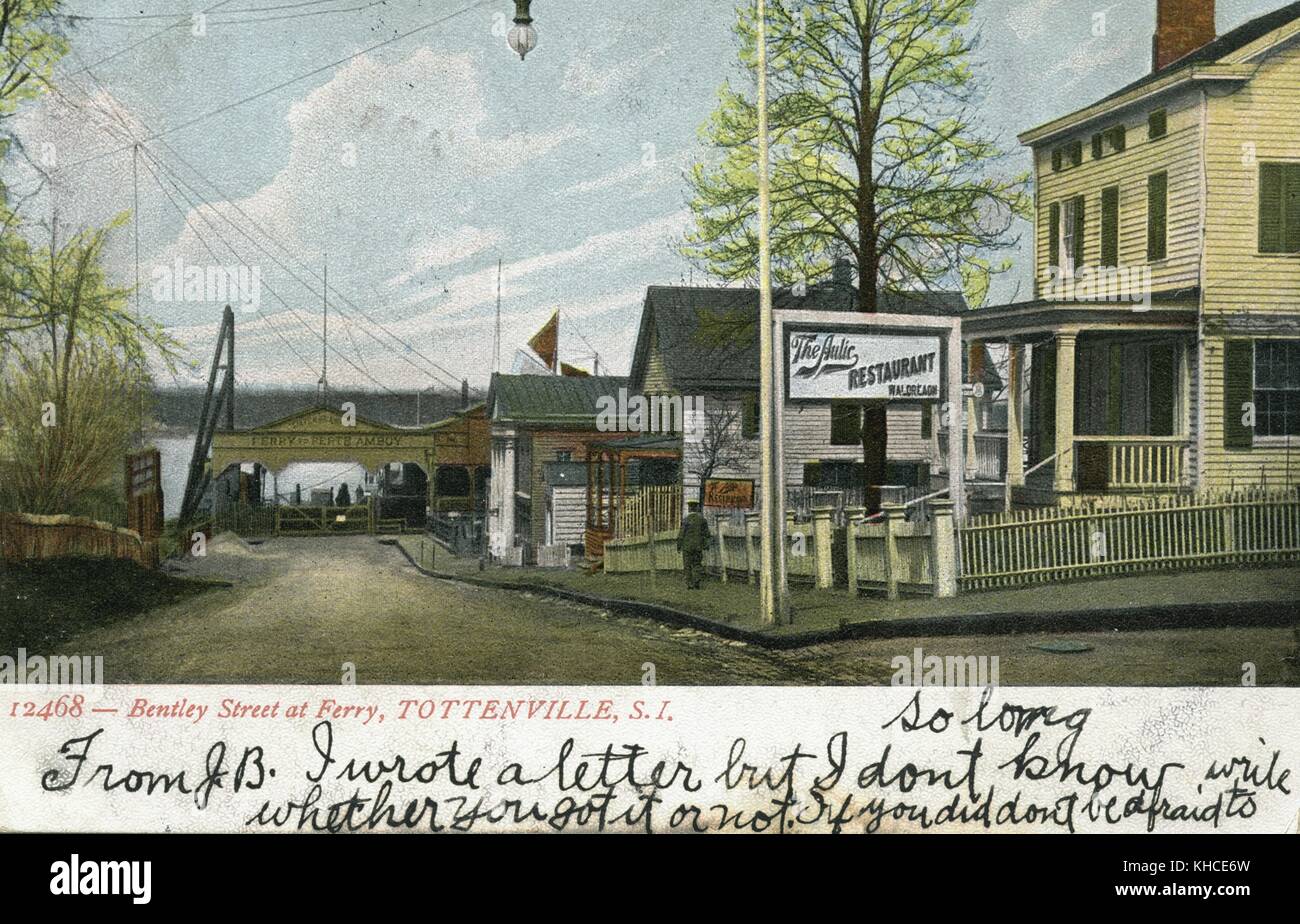 FERRY TO PERTH AMBOY
The Aulic
RESTAURANT
WALDREAON
RESTAURANT
12468 — Bentley Street at Ferry, TOTTENVILLE, S.I.
so long
From J.B. I wrote a letter but I dont know write
whether you got it or not. If you did dont be afraid to
alamy
Image ID: KHCE6W
www.alamy.com